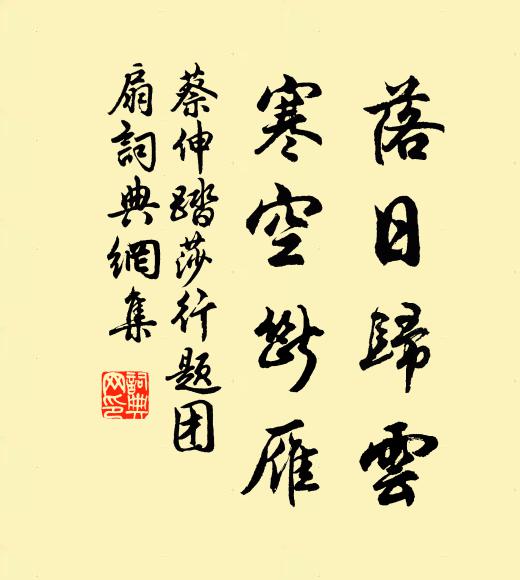 落日歸雲
寒空斷雁
蔡伸踏莎行題团
扇詞典網集
詞典网印